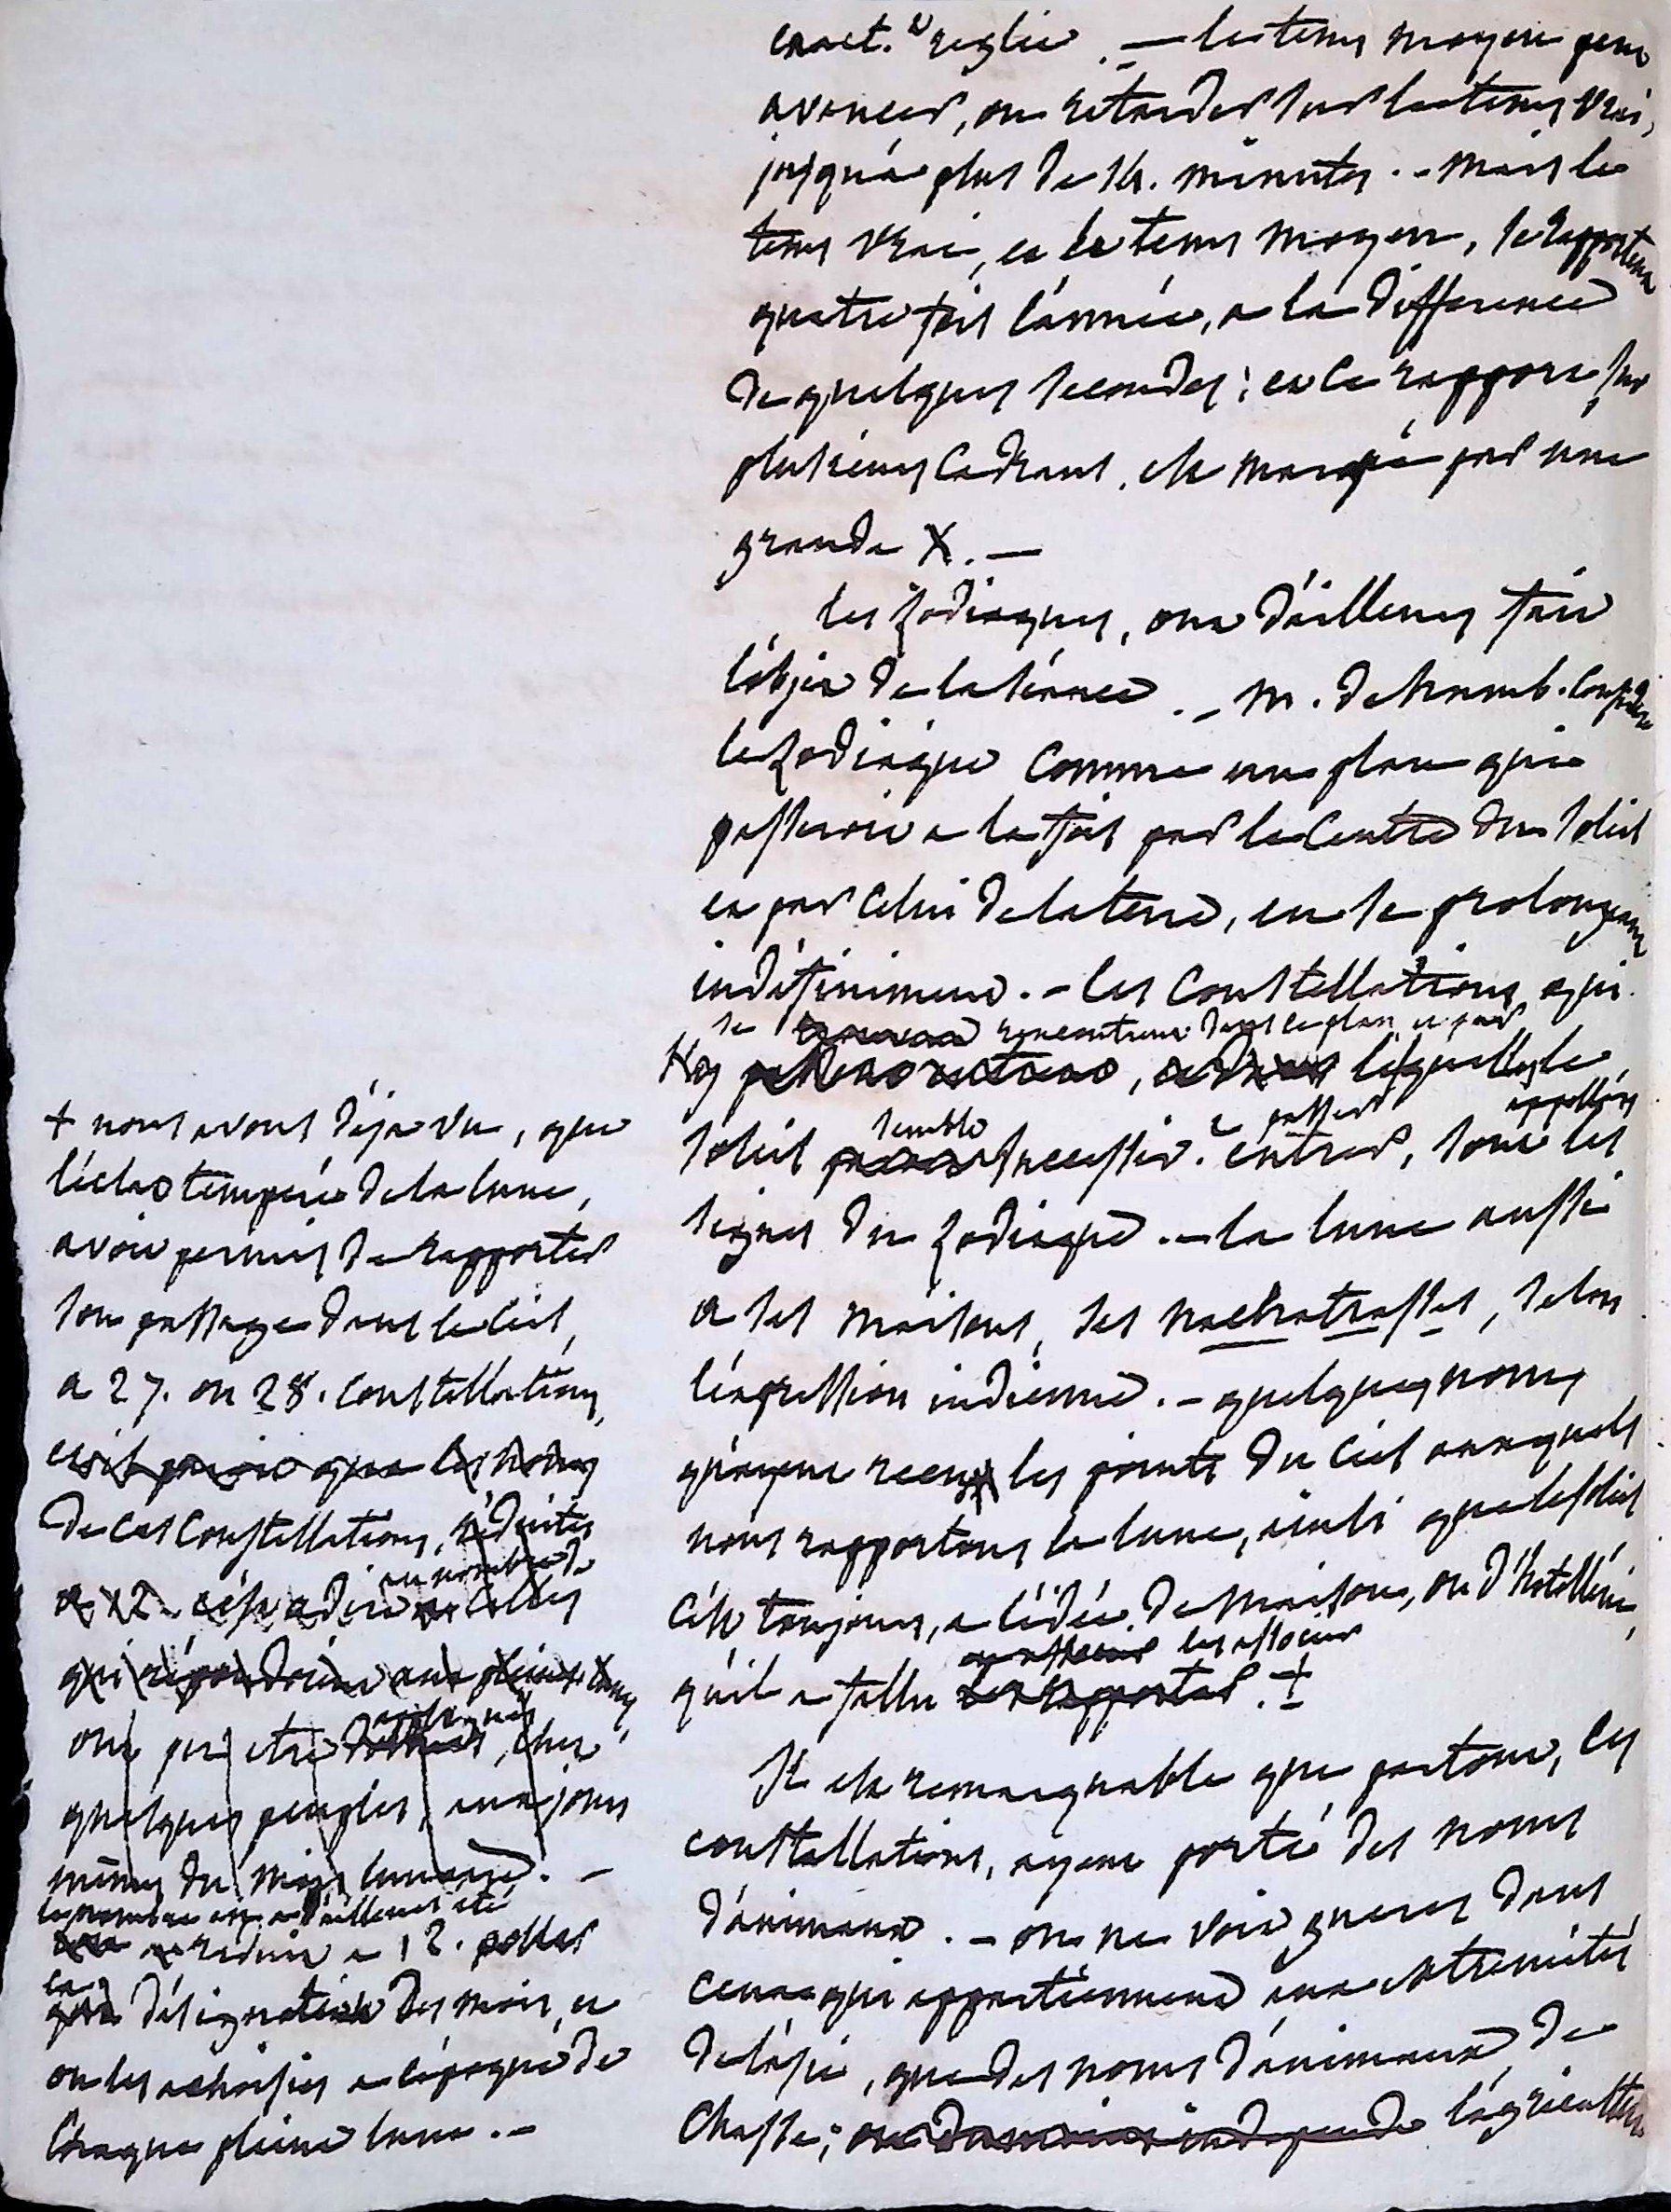 exact.t reglée. — le tems moyen peut
avancer, ou retarder sur le tems vrai,
jusqu'à plus de 14. minutes. - mais le
tems vrai, et le tems moyen, se rapportent
quatre fois l'année, a la difference
de quelques secondes; et ce rapport sur
plusieurs cadrans, est marqué par une
grande X. —
les zodiaques, ont d'ailleurs fait
l'objet de la séance. - M. de humb. considere
le zodiaque comme un plan qui
passeroit a la fois par le centre du soleil
et par celui de la terre, en se prolongeant
indéfiniment. - les constellations qui
se rencontrent dans ce plan et par
lesquelles le
semble a passer appellées
soleil successiv.t entrer, sont les
signes du zodiaque. - la lune aussi
a ses maisons, ses nachatrasses, selon
l'expression indienne. - quelques noms
qu'ayent reçus les points du ciel auxquels
nous rapportons la lune, ainsi que le soleil
c'est toujours, a l'idée de maison, ou d'hotellerie,
les associer
qu'il a fallu les rapporter. +
Il est remarquable que partout, les
constellations, ayent porté des noms
d'animaux. - on ne voit gueres dans
ceux qui appartiennent aux extremités
de l'asie, que des noms d'animaux de
chasse; l'agriculture
+ nous avons déja vu, que
l'éclat tempéré de la lune,
avoit permis de rapporter
son passage dans le ciel,
a 27. ou 28. constellations,
et il paroit que les noms
de ces constellations, réduites
au nombre de
a 12. c'est a dire a celles
qui répondoient aux pleines lunes,
appliqués
ont pu etre donnés, chez
quelques peuples, aux jours
mêmes du mois lunaire. -
le nombre en a d'ailleurs été
reduit a 12. pour
la
désignation des mois, et
on les a choisies a l'époque de
chaque pleine lune. -